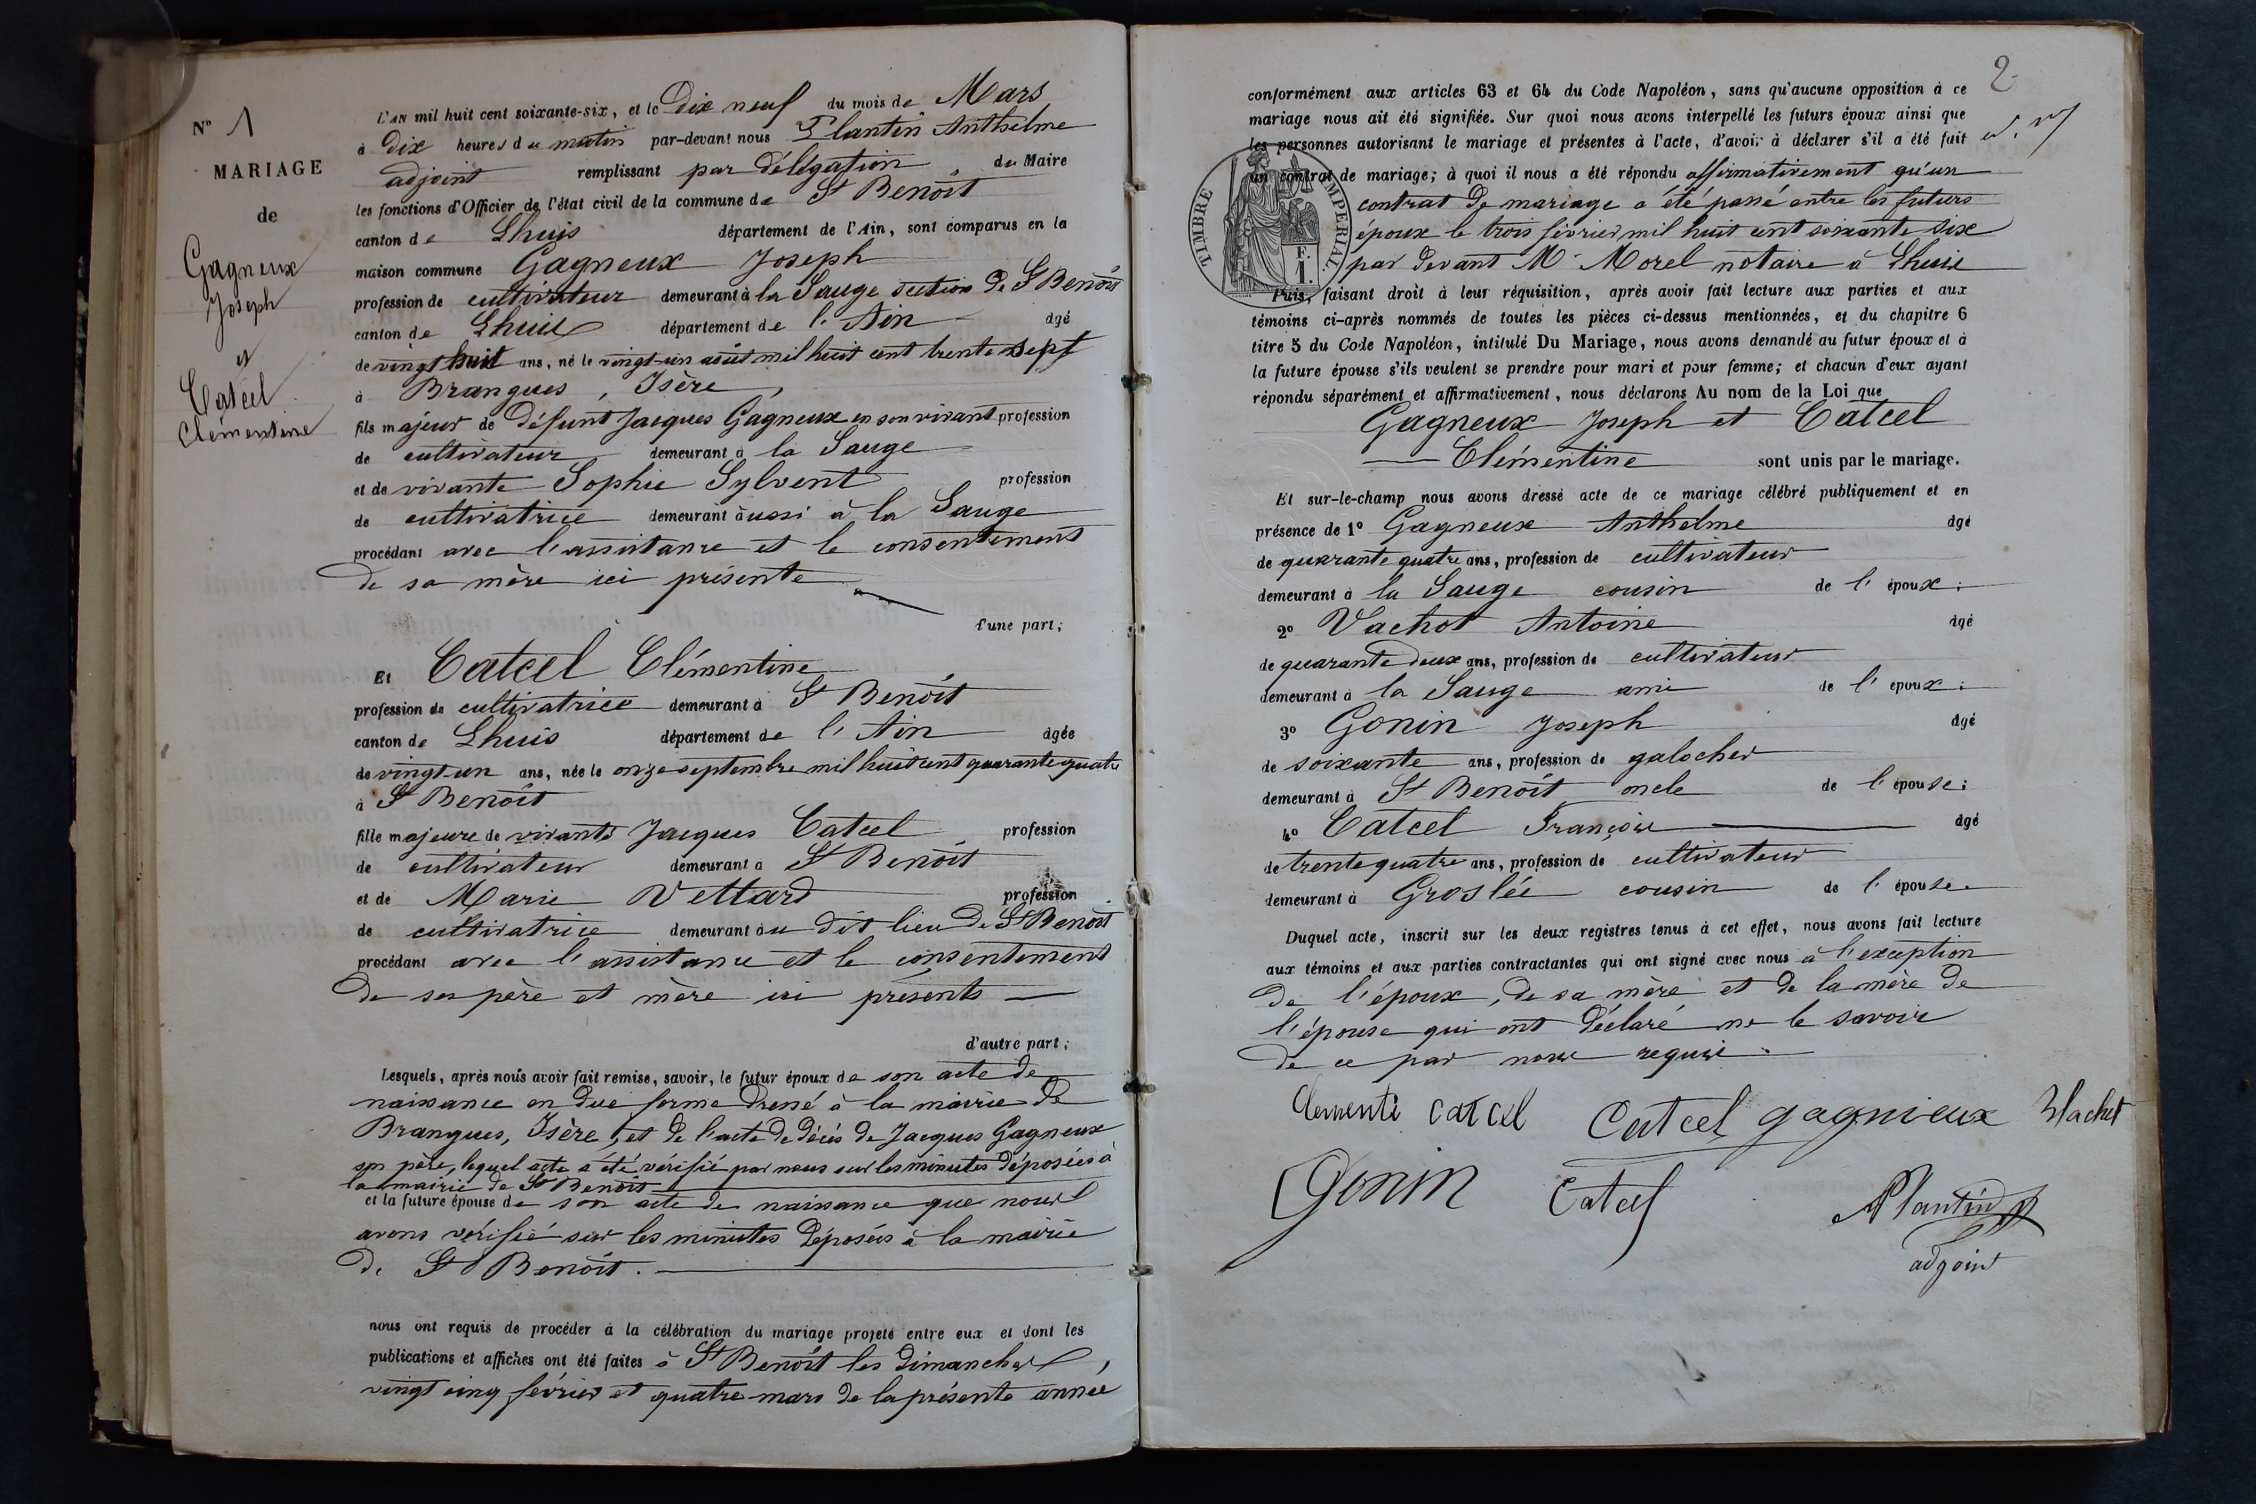 N° 1
MARIAGE
de
Gagneux
Joseph
et
Catcel
Clémentine
L'AN mil huit cent soixante-six, et le Dix neuf du mois de Mars
à dix heures du matin par-devant nous Plantin Anthelme
adjoint remplissant par délégation du Maire
les fonctions d'Officier de l'état civil de la commune de St Benoît
canton de Lhuis département de l'Ain, sont comparus en la
maison commune Gagneux Joseph
profession de cultivateur demeurant à la Sauge section de St Benoît
canton de Lhuis département de l'Ain âgé
de vingt huit ans, né le vingt-un août mil huit cent trente sept
à Brangues, Isère,
fils majeur de défunt Jacques Gagneux en son vivant profession
de cultivateur demeurant à la Sauge
et de vivante Sophie Sylvent profession
de cultivatrice demeurant aussi à la Sauge
procédant avec l'assistance et le consentement
de sa mère ici présente
d'une part;
Et Catcel Clémentine
profession de cultivatrice demeurant à St Benoît
canton de Lhuis département de l'Ain âgée
de vingt-un ans, née le onze septembre mil huit cent quarante quatre
à St Benoît
fille majeure de vivants Jacques Catcel profession
de cultivateur demeurant à St Benoît
et de Marie Vettard profession
de cultivatrice demeurant au dit lieu de St Benoît
procédant avec l'assistance et le consentement
de ses père et mère ici présents
d'autre part;
Lesquels, après nous avoir fait remise, savoir, le futur époux de son acte de
naissance en due forme dressé à la mairie de
Brangues, Isère, et de l'acte de décès de Jacques Gagneux
son père, lequel acte a été vérifié par nous sur les minutes déposées à
la mairie de St Benoît
et la future épouse de son acte de naissance que nous
avons vérifié sur les minutes déposées à la mairie
de St Benoît.
nous ont requis de procéder à la célébration du mariage projeté entre eux et dont les
publications et affiches ont été faites à St Benoît les dimanches
vingt cinq février et quatre mars de la présente année
2
conformément aux articles 63 et 64 du Code Napoléon, sans qu'aucune opposition à ce
mariage nous ait été signifiée. Sur quoi nous avons interpellé les futurs époux ainsi que
les personnes autorisant le mariage et présentes à l'acte, d'avoir à déclarer s'il a été fait
un contrat de mariage; à quoi il nous a été répondu affirmativement qu'un
contrat de mariage a été passé entre les futurs
époux le trois février mil huit cent soixante six
par devant Me Morel notaire à Lhuis
TIMBRE IMPERIAL
1 F.
Puis, faisant droit à leur réquisition, après avoir fait lecture aux parties et aux
témoins ci-après nommés de toutes les pièces ci-dessus mentionnées, et du chapitre 6
titre 5 du Code Napoléon, intitulé Du Mariage, nous avons demandé au futur époux et à
la future épouse s'ils veulent se prendre pour mari et pour femme; et chacun d'eux ayant
répondu séparément et affirmativement, nous déclarons Au nom de la Loi que
Gagneux Joseph et Catcel
Clémentine sont unis par le mariage.
Et sur-le-champ nous avons dressé acte de ce mariage célébré publiquement et en
présence de 1° Gagneux Anthelme âgé
de quarante quatre ans, profession de cultivateur
demeurant à la Sauge cousin de l'époux;
2° Vachot Antoine âgé
de quarante deux ans, profession de cultivateur
demeurant à la Sauge ami de l'époux;
3° Gonin Joseph âgé
de soixante ans, profession de galocher
demeurant à St Benoît oncle de l'épouse;
4° Catcel François âgé
de trente quatre ans, profession de cultivateur
demeurant à Groslée cousin de l'épouse.
Duquel acte, inscrit sur les deux registres tenus à cet effet, nous avons fait lecture
aux témoins et aux parties contractantes qui ont signé avec nous à l'exception
de l'époux, de sa mère et de la mère de
l'épouse qui ont déclaré ne le savoir
de ce par nous requis.
Clementi catcel Catcel gagnieux Vlachet
Gonin Catcel APlantin
adjoint